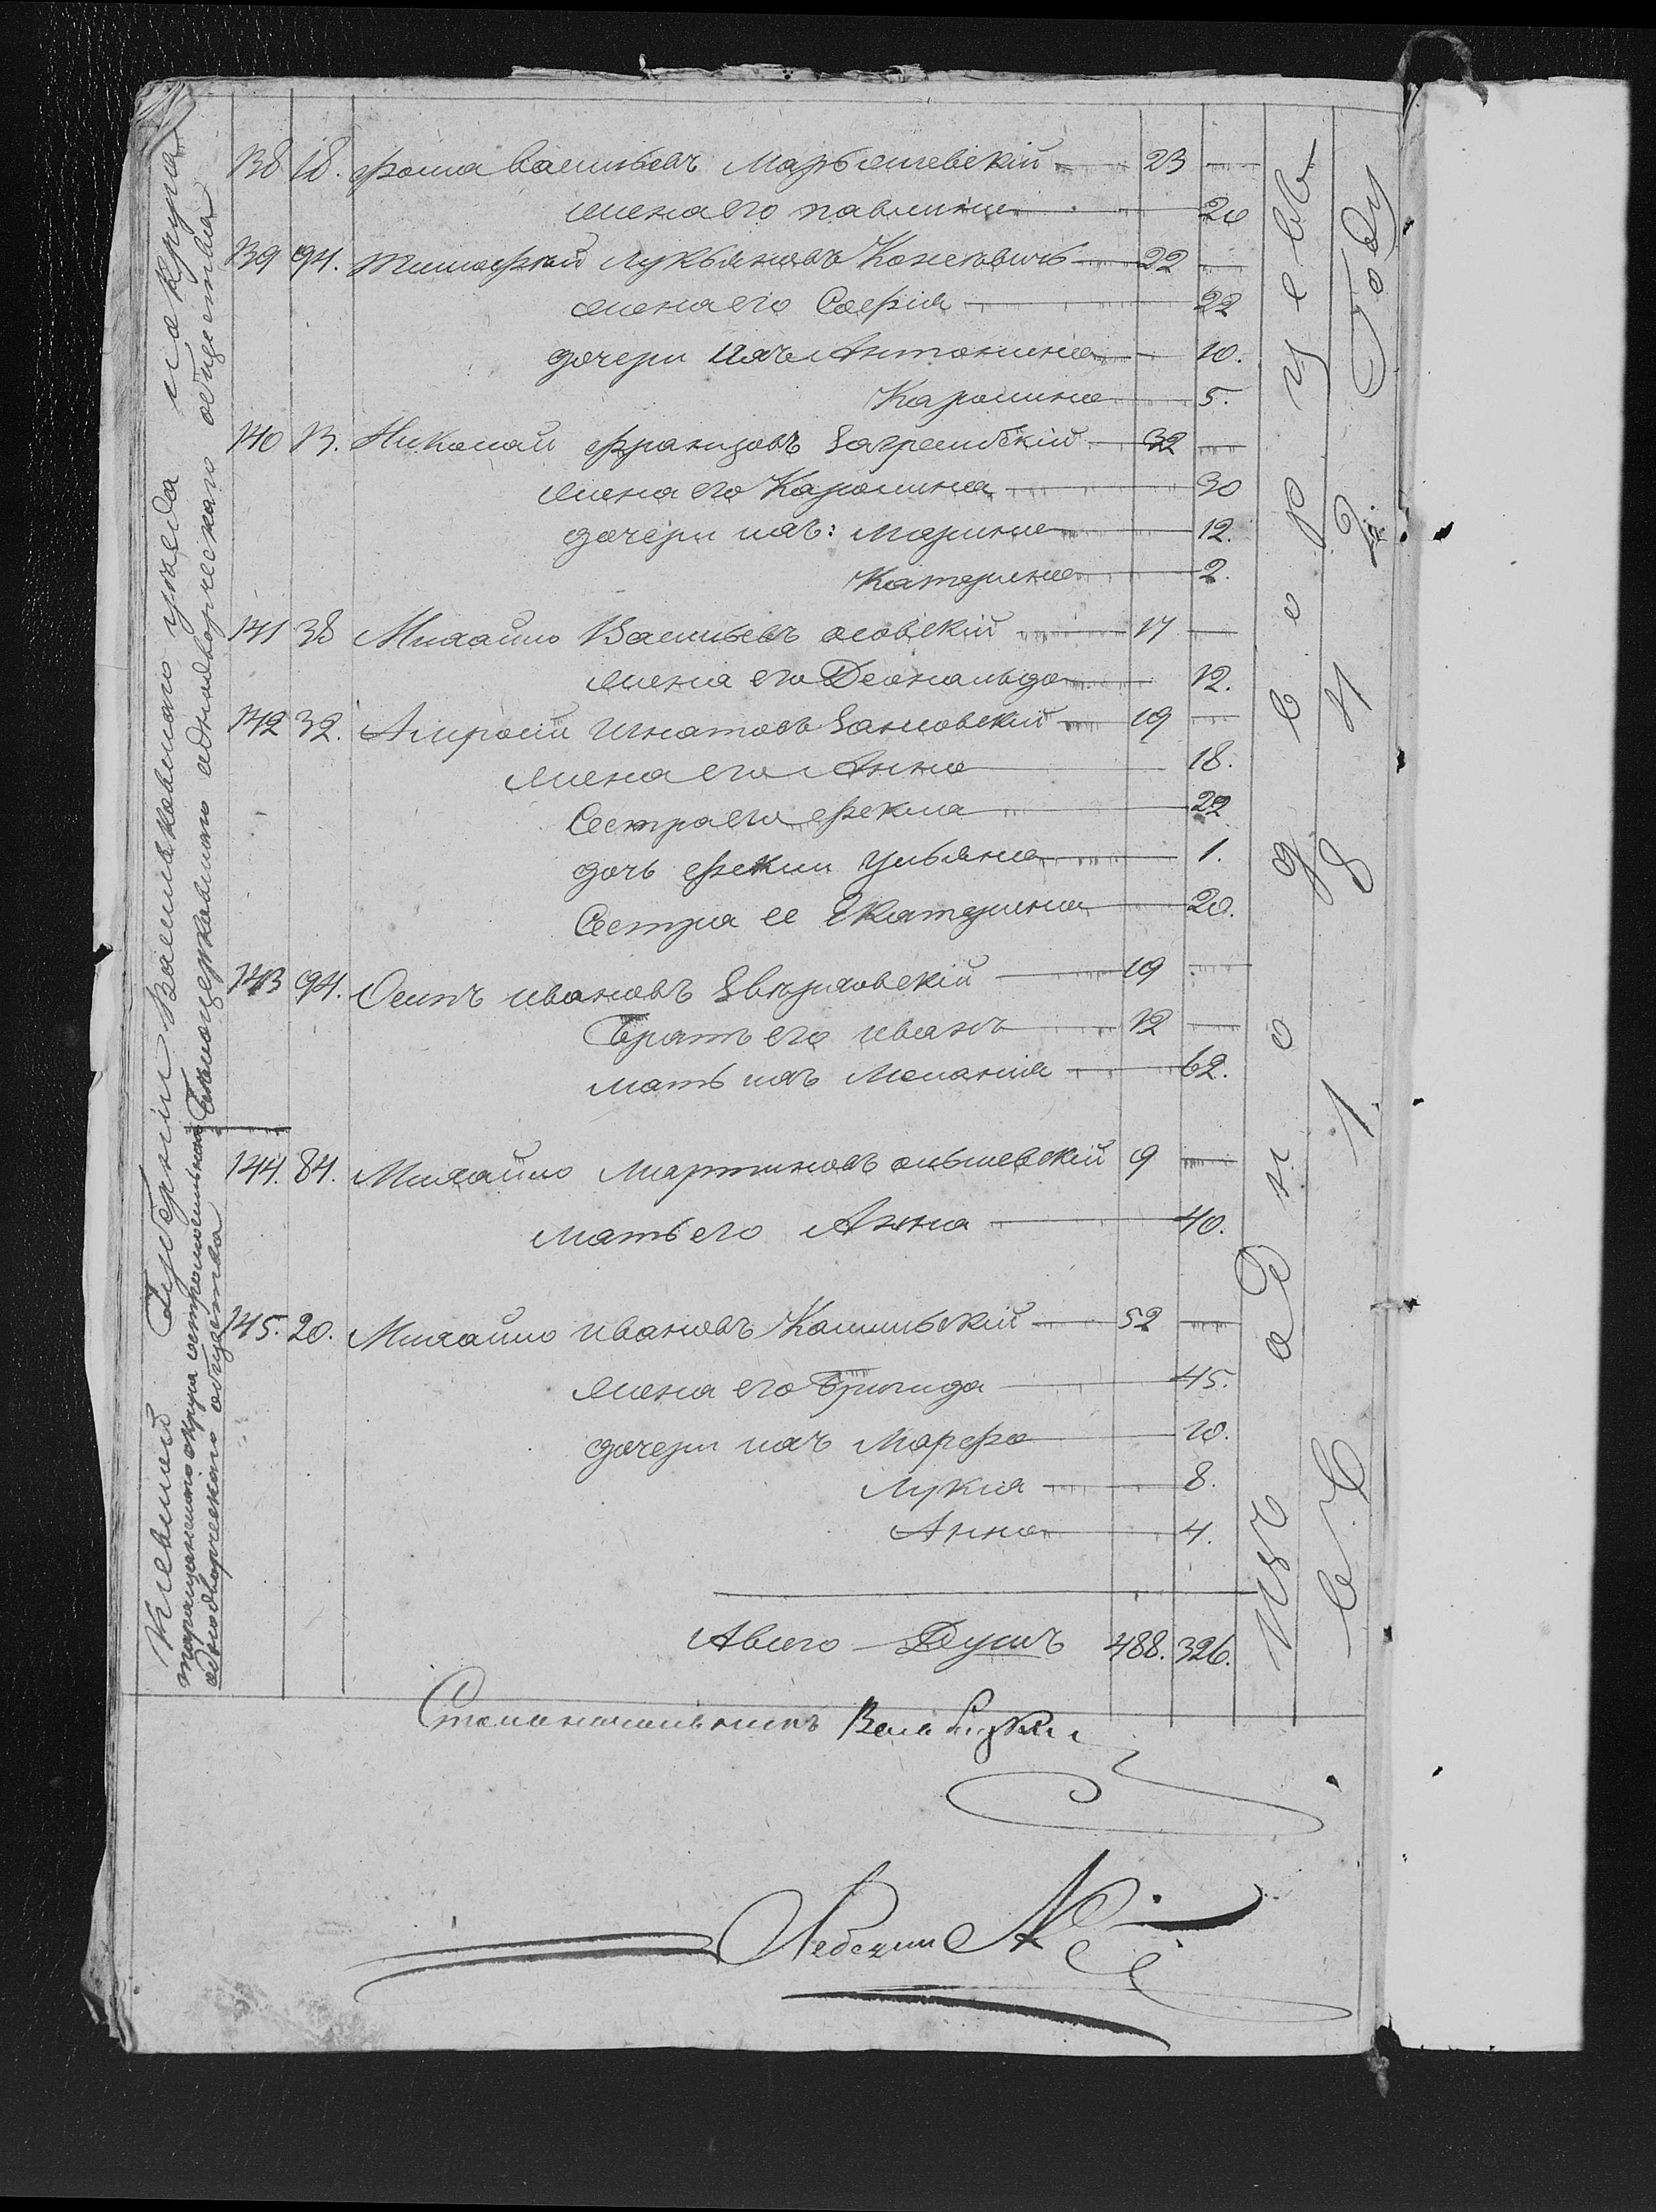 138 18. Фома Васильевъ Марьяшевскій 23 —
жена его Павлина 20
139 94. Тимофтей Лукьяновъ Конековичъ 22 —
жена его Софія 22
дочери ихъ Антонина 10.
Каролина 5.
140 13. Николай Францовъ Загрембскій 32 —
жена его Каролина 30
дочери ихъ: Марина 12.
Катерина 2.
141 38 Михайло Васильевъ Осовскій 17 —
жена его 12.
142 32. Игнатовъ 19 —
жена его Анна 18.
Сестра его Фекла 22
дочь Феклы Ульяна 1.
Сестра ее Екатерина 20.
143 94. Осипъ Ивановъ Звѣрховскій 19 —
Братъ его Иванъ 12 —
Мать ихъ Меланія 62.
144. 84. Михайло Мартиновъ Ольшевскій 9 —
Мать его Анна 40.
145. 20. Михайло Ивановъ 52 —
жена его Бригида 45.
дочери ихъ Марфа 10.
Лукія 8.
Анна 4.
Авсего Душъ 488. 326.
Столоначальникъ
Кіевской Губерніи Васильковского уѣзда и округа
Бѣлоцерковского однодворческого общества
таращанского округа
однодворческого общества
Изъ однодворцевъ
въ 1842 Году